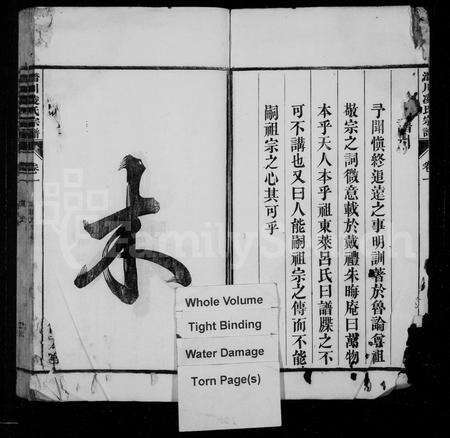 譜引
予聞愼終追遠之事明訓著於魯論尊祖
敬宗之詞微意載於戴禮朱晦庵曰萬物
本乎天人本乎祖東萊呂氏曰譜牒之不
可不講也又曰人能嗣祖宗之傳而不能
嗣祖宗之心其可乎
氏宗譜
卷一
木
川凌氏宗譜
卷一
Whole Volume
Tight Binding
Water Damage
Torn Page(s)
FamilySearch